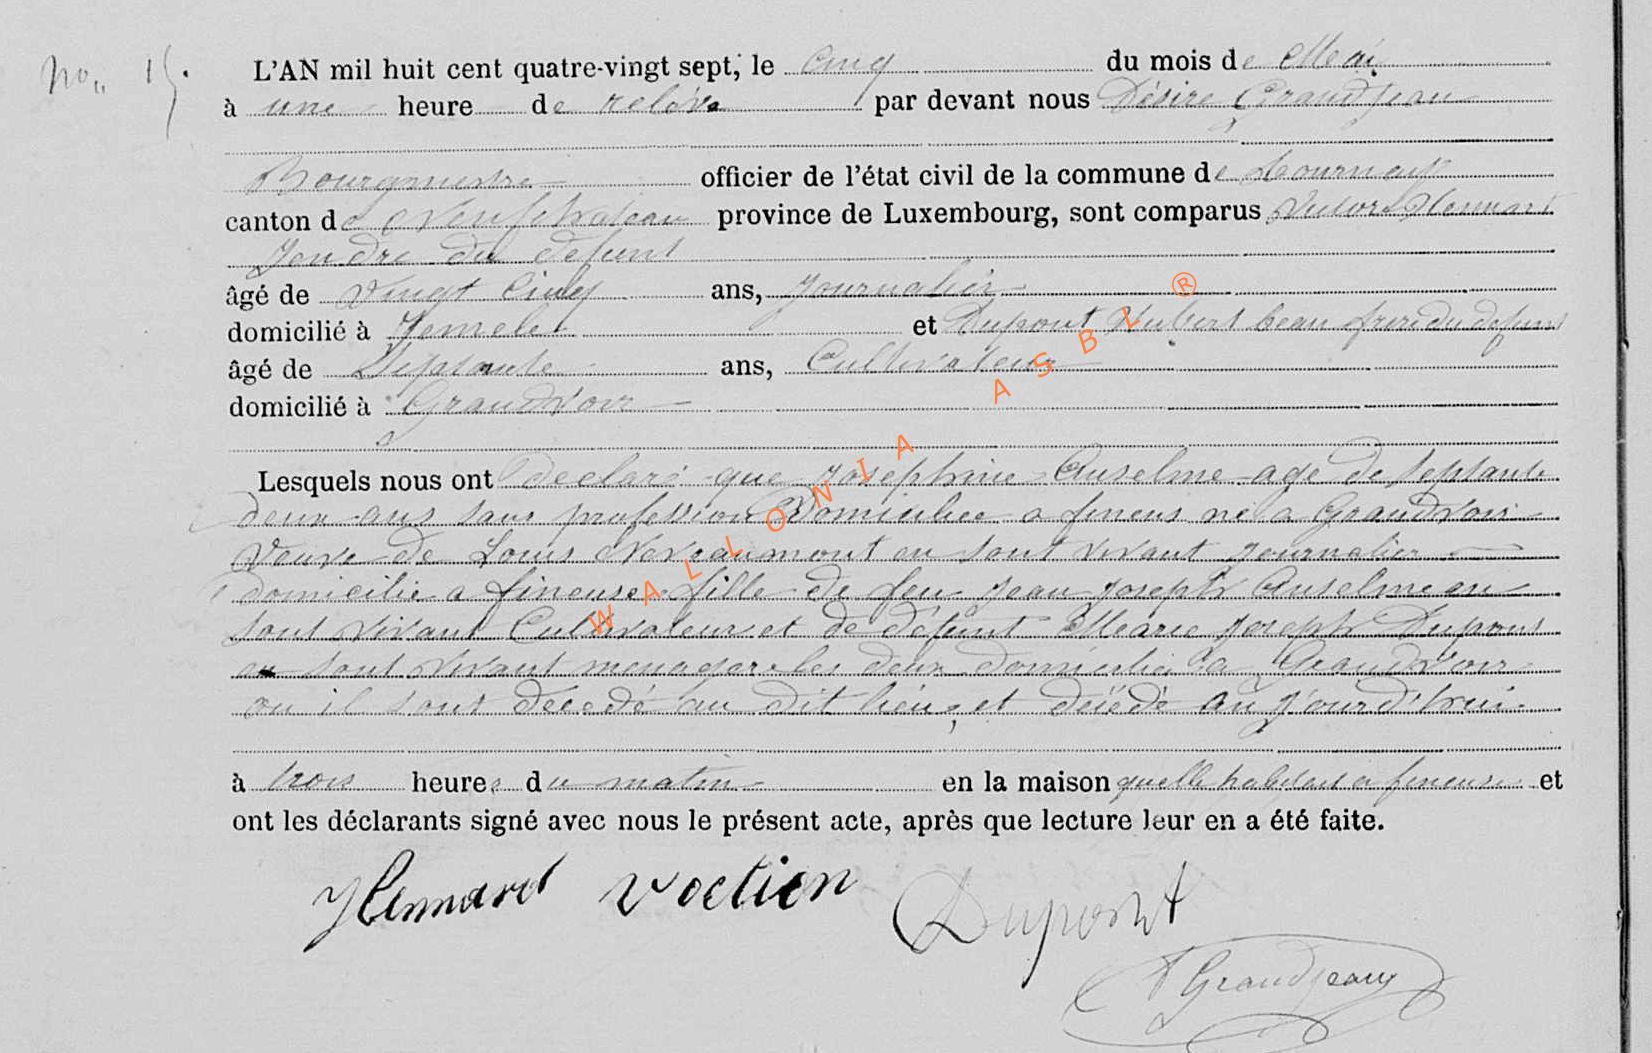 No. 15.
L'AN mil huit cent quatre-vingt sept, le Cinq du mois de Mai
à une heure de relevé par devant nous Désiré Grandjean
Bourgmestre officier de l'état civil de la commune de Tournay
canton de Neufchateau province de Luxembourg, sont comparus Victor Hennard
Jendre du defunt
âgé de Vingt Cinq ans, Journalier
domicilié à Jemelle et Dupont Hubert beau frere du defunt
âgé de Septante ans, Cultivateur
domicilié à Grandvoir
Lesquels nous ont declaré que Josephine Anselme age de septante
deux ans sans profession Domiciliee a fineuse né a Grandvoir
Veuve de Louis en sont vivant journalier
domicilié a fineuse fille de feu Jean joseph Anselme en
sont vivant Cultivateur et de défunt Marie joseph Dupont
en sont vivant menagere les deux domicilié a Grandvoir
ou il sont décedé au dit lieu, et décédé au jourd'hui
à trois heures du matin en la maison quelle habitait a fineuse et
ont les déclarants signé avec nous le présent acte, après que lecture leur en a été faite.
Hennard Dupont
Grandjean
WALLONIA ASBL ®